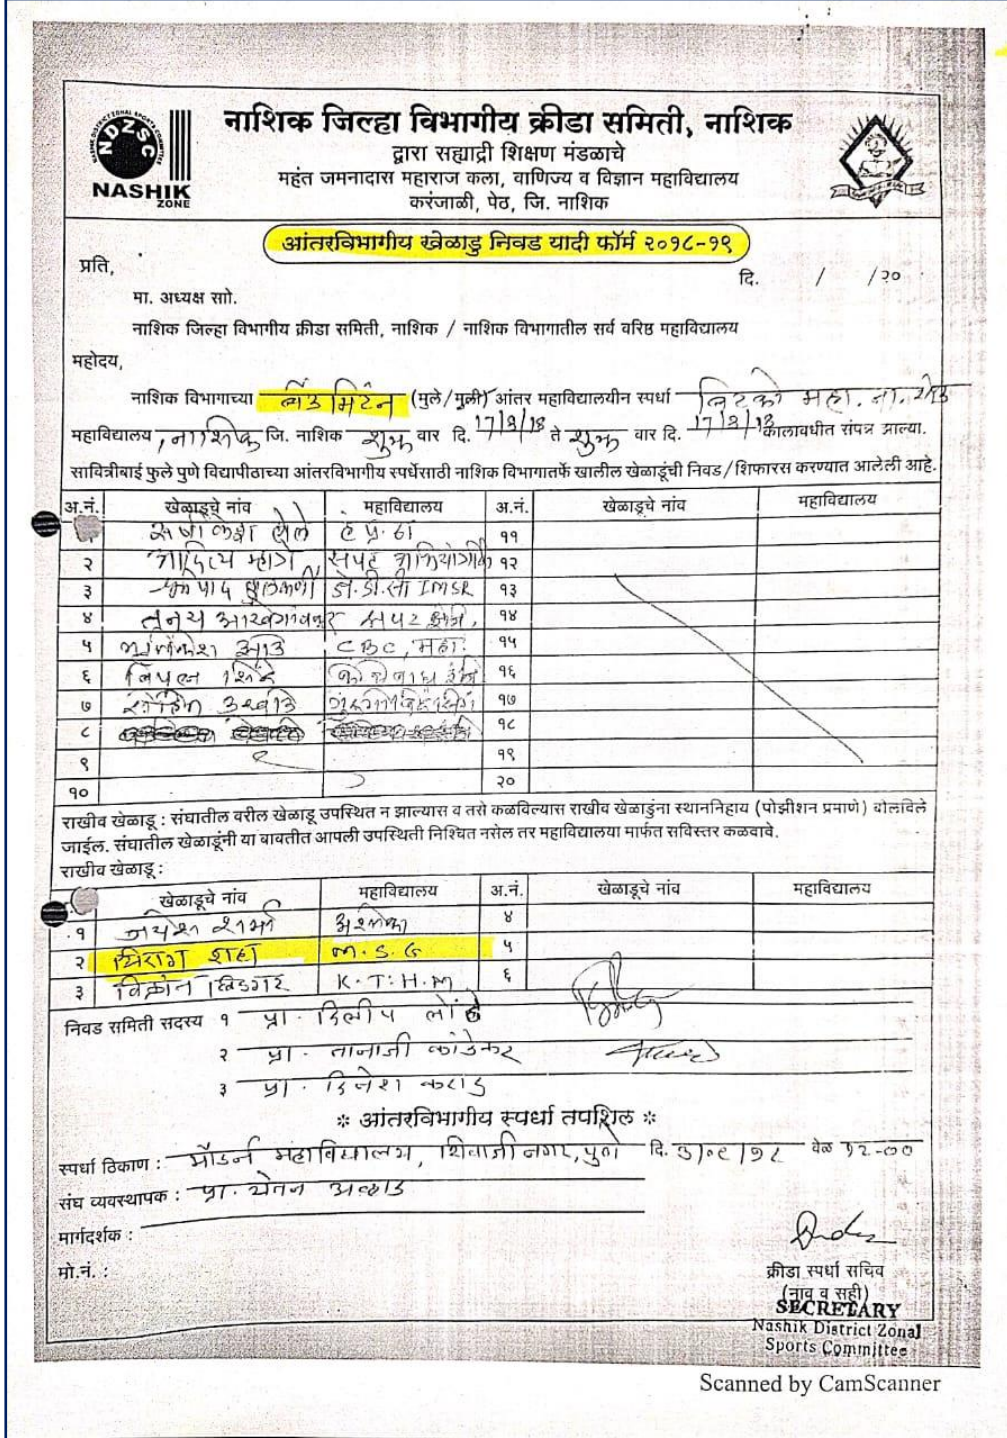 NDZSC
NASHIK
ZONE
नाशिक जिल्हा विभागीय क्रीडा समिती, नाशिक
द्वारा सह्याद्री शिक्षण मंडळाचे
महंत जमनादास महाराज कला, वाणिज्य व विज्ञान महाविद्यालय
करंजाळी, पेठ, जि. नाशिक
आंतरविभागीय खेळाडु निवड यादी फॉर्म २०१८-१९
प्रति,
दि. / /२०
मा. अध्यक्ष सो.
नाशिक जिल्हा विभागीय क्रीडा समिती, नाशिक / नाशिक विभागातील सर्व वरिष्ठ महाविद्यालय
महोदय,
नाशिक विभागाच्या बॅडमिंटन (मुले/मुली) आंतर महाविद्यालयीन स्पर्धा बिटको महा. ना. रोड
महाविद्यालय, नाशिक जि. नाशिक शुक्र वार दि. ते शुक्र वार दि. कालावधीत संपन्न झाल्या.
सावित्रीबाई फुले पुणे विद्यापीठाच्या आंतरविभागीय स्पर्धेसाठी नाशिक विभागातर्फे खालील खेळाडूंची निवड/शिफारस करण्यात आलेली आहे.
अ.नं. खेळाडूचे नांव महाविद्यालय अ.नं. खेळाडूचे नांव महाविद्यालय
हं. प्र. ठा ११
२ आदित्य सपट १२
३ जे.डी.सी IMSR १३
४ तनय सपट १४
५ CBC, महा. १५
६ विपुल शिंदे १६
७ १७
८ १८
९ १९
१० २०
राखीव खेळाडू : संघातील वरील खेळाडू उपस्थित न झाल्यास व तसे कळविल्यास राखीव खेळाडुंना स्थाननिहाय (पोझीशन प्रमाणे) बोलविले
जाईल. संघातील खेळाडूंनी या बाबतीत आपली उपस्थिती निश्चित नसेल तर महाविद्यालया मार्फत सविस्तर कळवावे.
राखीव खेळाडू :
खेळाडूचे नांव महाविद्यालय अ.नं. खेळाडूचे नांव महाविद्यालय
१ जयेश शर्मा अशोका ४
२ चिराग शहा M.S.G ५
३ विक्रांत K.T.H.M ६
निवड समिती सदस्य १ प्रा. दिलीप लोंढे
२ प्रा. तानाजी कांडेकर
३ प्रा. दिनेश कराड
* आंतरविभागीय स्पर्धा तपशिल *
स्पर्धा ठिकाण : मॉडर्न महाविद्यालय, शिवाजीनगर, पुणे दि. वेळ १२-००
संघ व्यवस्थापक : प्रा. चेतन आव्हाड
मार्गदर्शक :
मो.नं. :
क्रीडा स्पर्धा सचिव
(नाव व सही)
SECRETARY
Nashik District Zonal
Sports Committee
Scanned by CamScanner